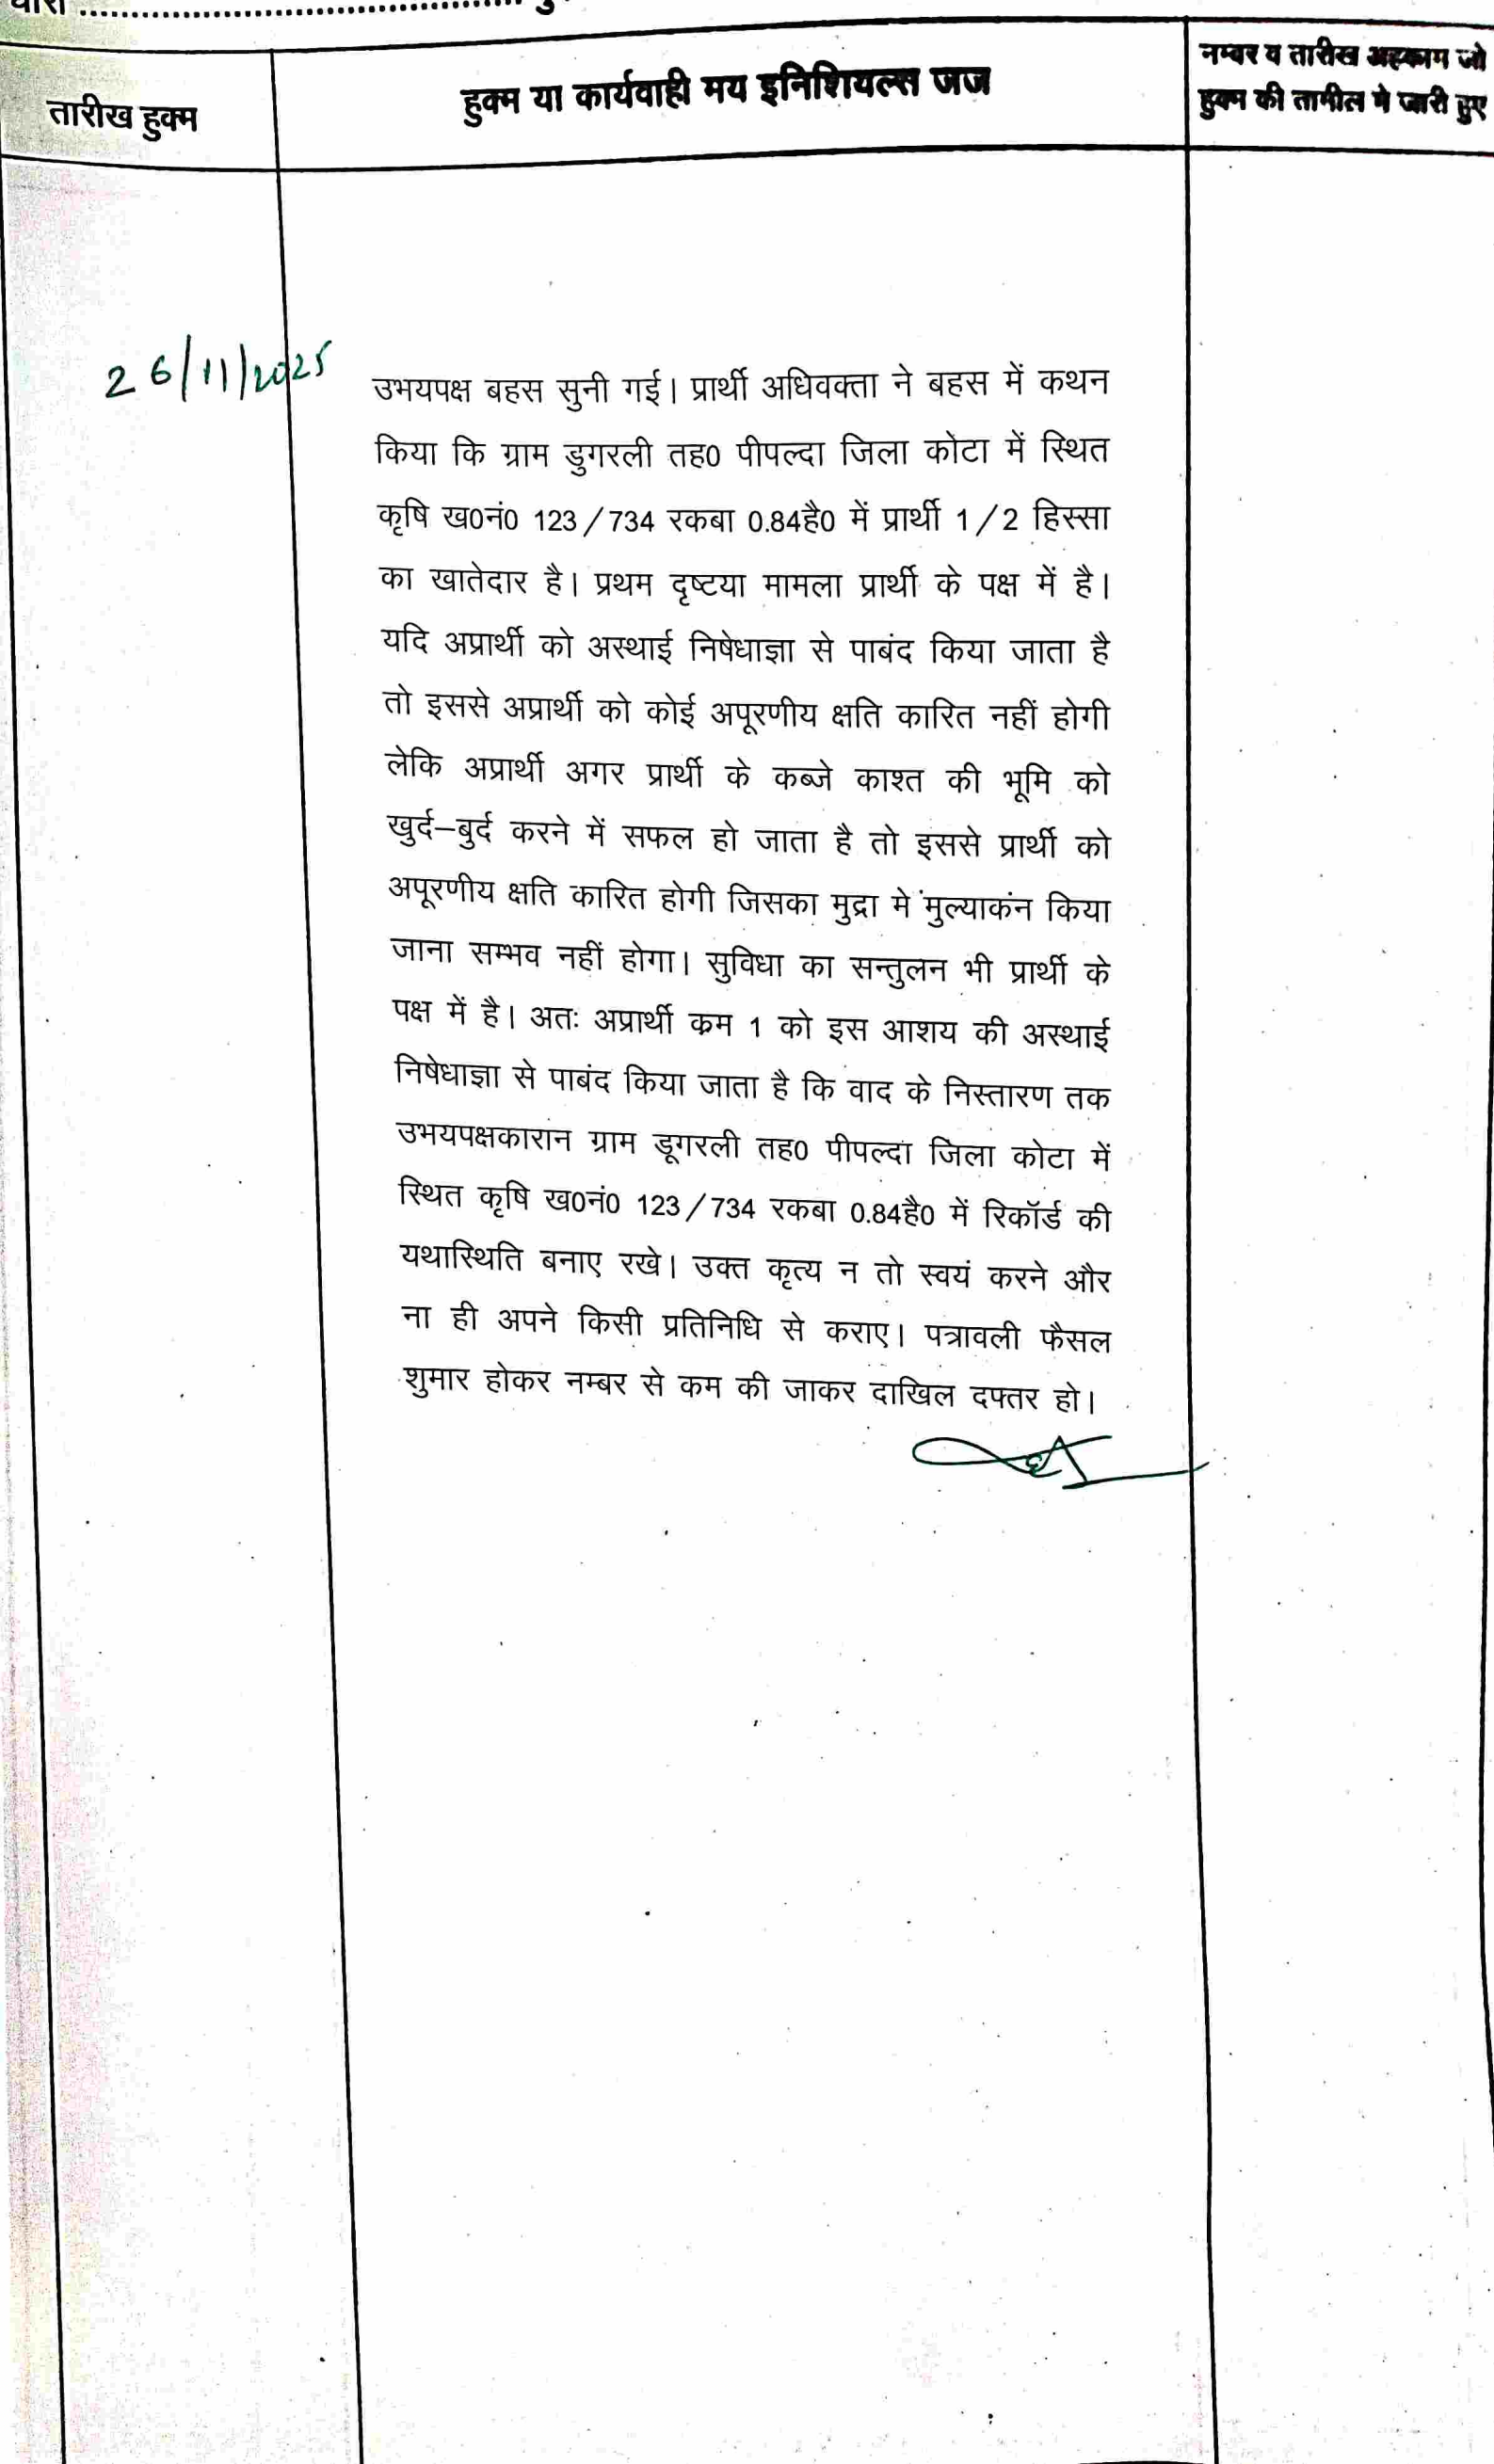 तारीख हुक्म
हुक्म या कार्यवाही मय इनिशियल्स जज
नम्बर व तारीख अहकाम जो
हुक्म की तामील मे जारी हुए
26/11/2025
उभयपक्ष बहस सुनी गई। प्रार्थी अधिवक्ता ने बहस में कथन
किया कि ग्राम डुगरली तह0 पीपल्दा जिला कोटा में स्थित
कृषि ख0नं0 123/734 रकबा 0.84है0 में प्रार्थी 1/2 हिस्सा
का खातेदार है। प्रथम दृष्टया मामला प्रार्थी के पक्ष में है।
यदि अप्रार्थी को अस्थाई निषेधाज्ञा से पाबंद किया जाता है
तो इससे अप्रार्थी को कोई अपूरणीय क्षति कारित नहीं होगी
लेकि अप्रार्थी अगर प्रार्थी के कब्जे काश्त की भूमि को
खुर्द–बुर्द करने में सफल हो जाता है तो इससे प्रार्थी को
अपूरणीय क्षति कारित होगी जिसका मुद्रा मे मुल्याकंन किया
जाना सम्भव नहीं होगा। सुविधा का सन्तुलन भी प्रार्थी के
पक्ष में है। अतः अप्रार्थी कम 1 को इस आशय की अस्थाई
निषेधाज्ञा से पाबंद किया जाता है कि वाद के निस्तारण तक
उभयपक्षकारान ग्राम डूगरली तह0 पीपल्दा जिला कोटा में
स्थित कृषि ख0नं0 123/734 रकबा 0.84है0 में रिकॉर्ड की
यथास्थिति बनाए रखे। उक्त कृत्य न तो स्वयं करने और
ना ही अपने किसी प्रतिनिधि से कराए। पत्रावली फैसल
शुमार होकर नम्बर से कम की जाकर दाखिल दफ्तर हो।